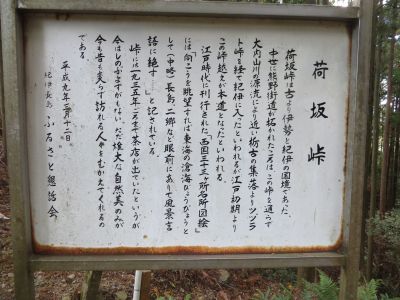 荷坂峠
荷坂峠は古より伊勢と紀伊の国境であった。
中世に熊野街道が拓かれたころは、この峠を通らず
大内山川の源流により近い栃古の集落よりツヅラ
ト峠を経て紀伊に入ったといわれるが江戸初期より
この峠越えが本道となったといわれる。
江戸時代に刊行された「西国三十三ヶ所名所図絵」
には向こうを眺望すれば東海の滄海びょうびょうと
して（中略）長島、二郷など眼前にありて風景言
語に絶す…」と記されている。
峠には一九三五年ころまで茶店が出ていたというが
今はしのぶよすがもない。ただ雄大な自然美のみが
今も昔も変らず訪れる人々をむかえてくれるの
である。
平成九年二月十二日
紀伊長島ふるさと懇話会